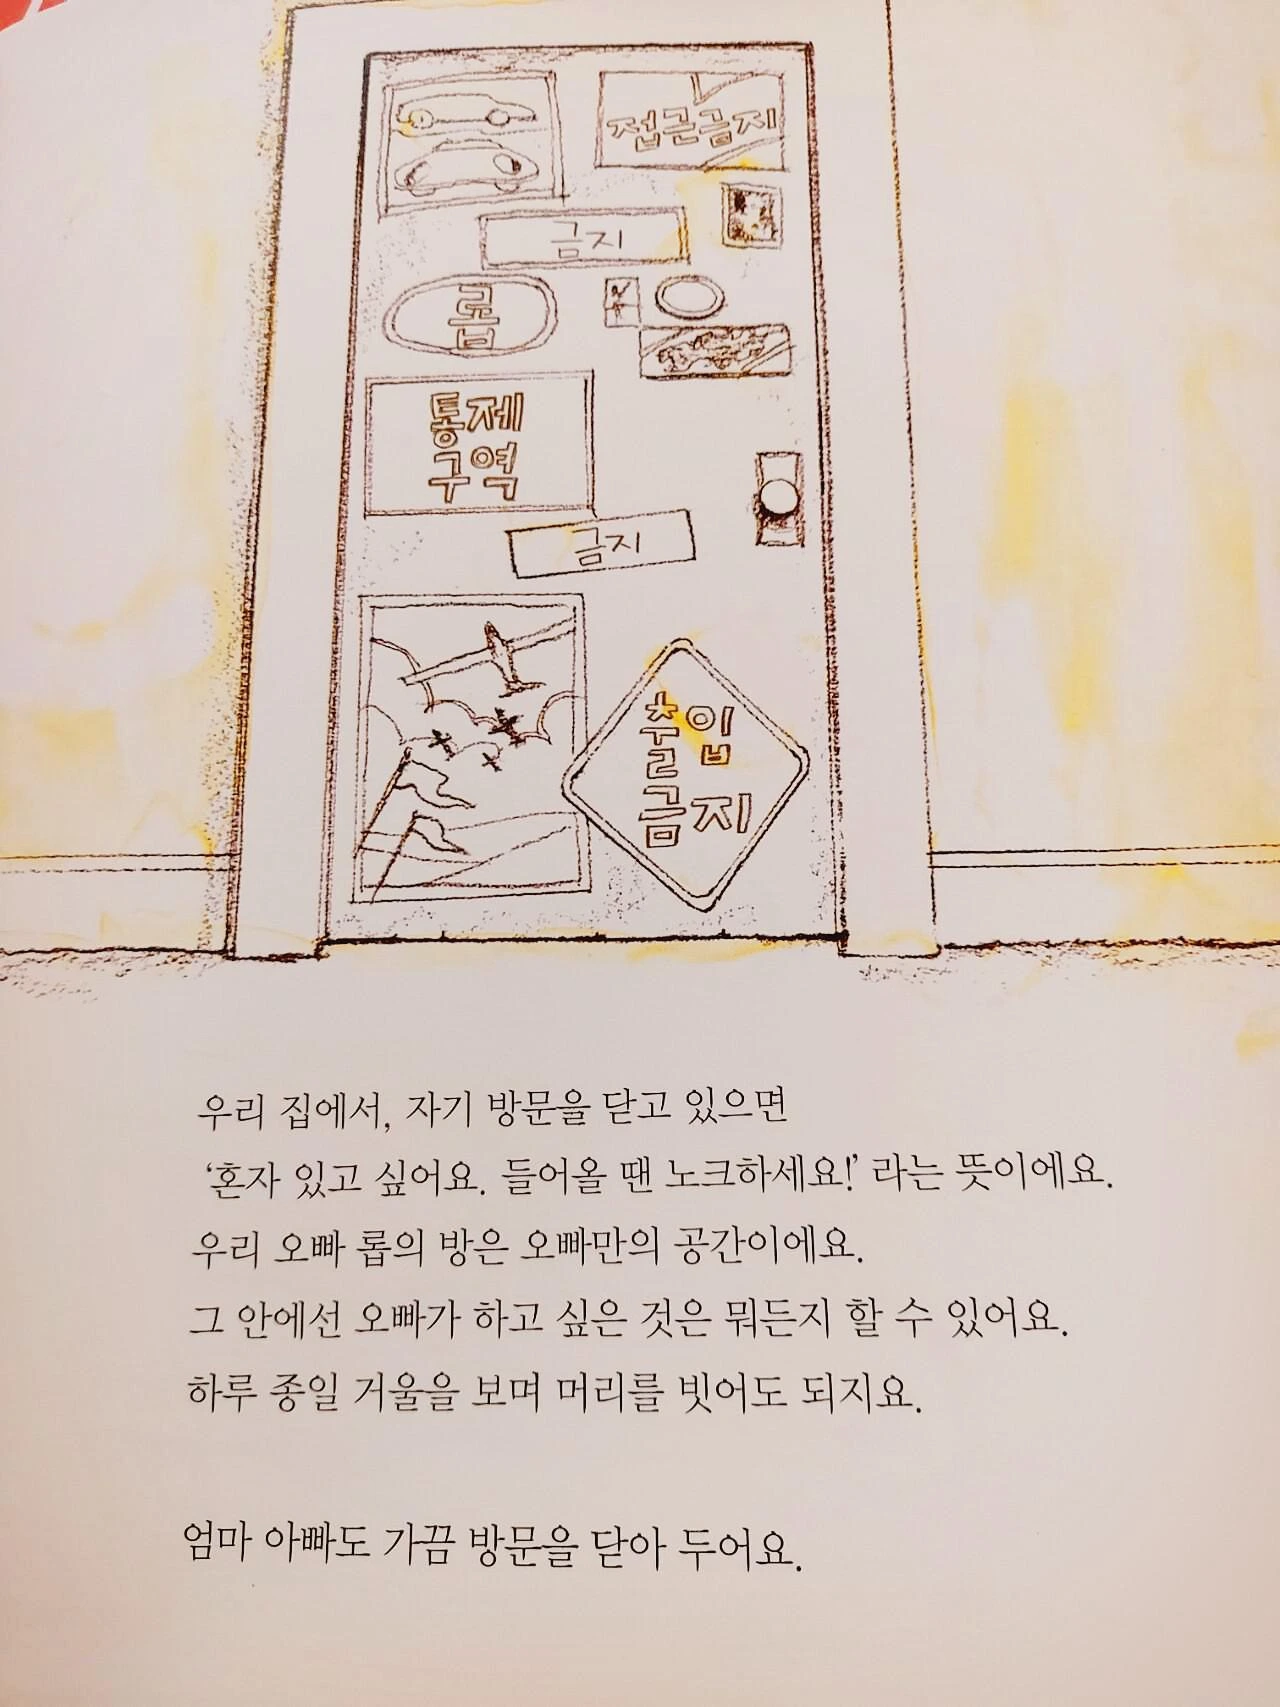 접근금지
금지
롭
통제
구역
금지
출입
금지
우리 집에서, 자기 방문을 닫고 있으면
‘혼자 있고 싶어요. 들어올 땐 노크하세요!’ 라는 뜻이에요.
우리 오빠 롭의 방은 오빠만의 공간이에요.
그 안에선 오빠가 하고 싶은 것은 뭐든지 할 수 있어요.
하루 종일 거울을 보며 머리를 빗어도 되지요.
엄마 아빠도 가끔 방문을 닫아 두어요.